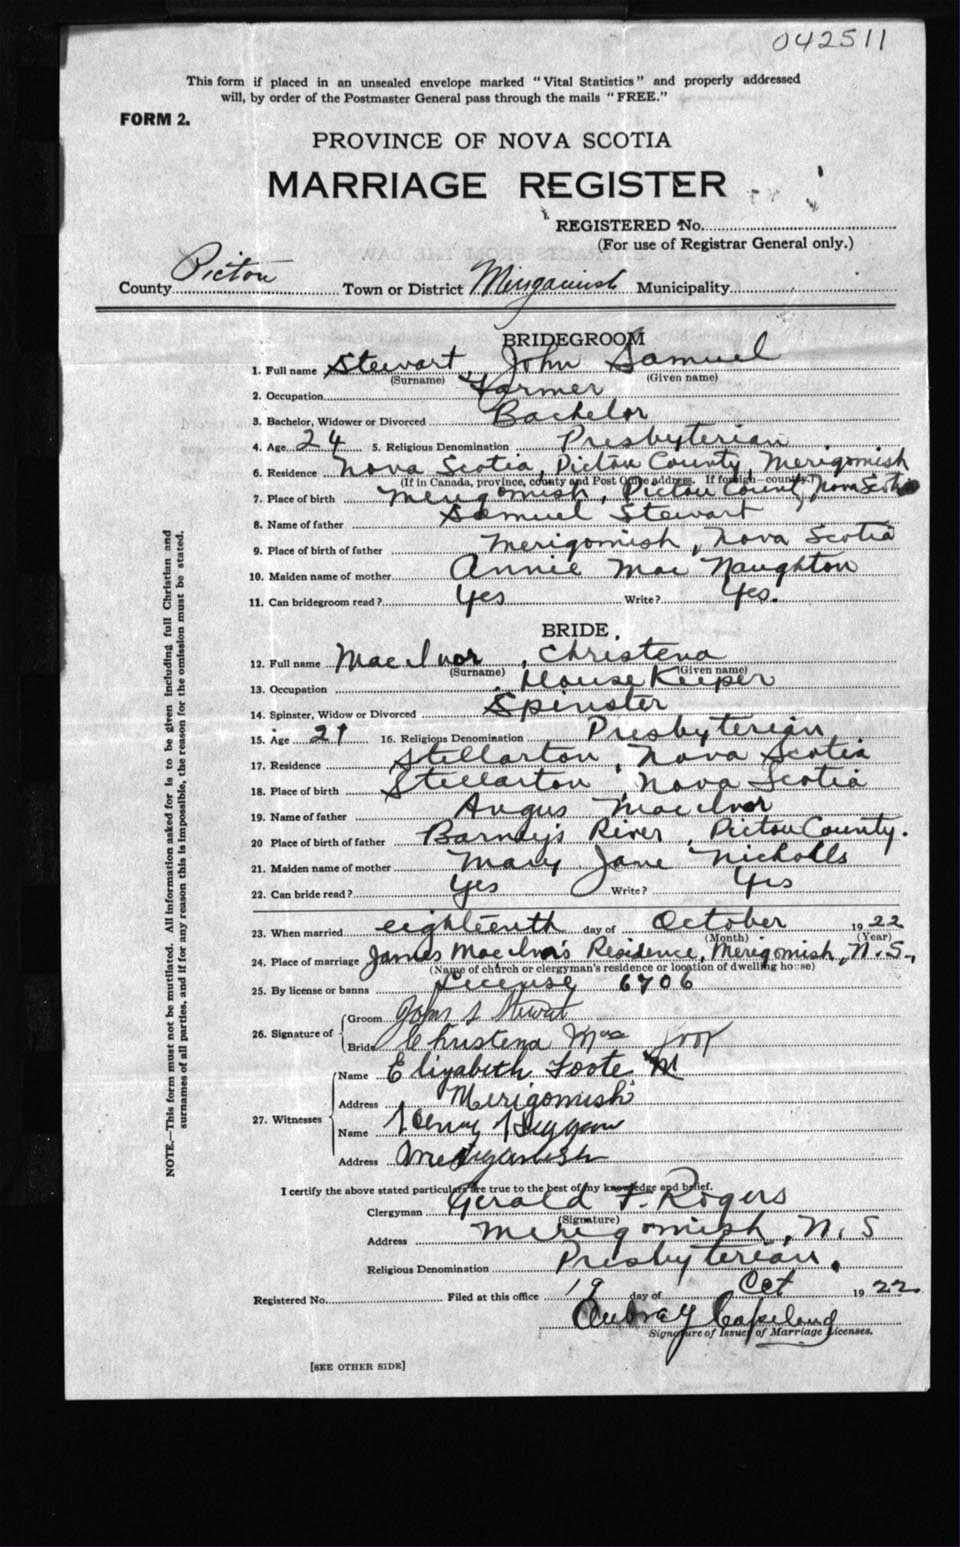 042511
This form if placed in an unsealed envelope marked "Vital Statistics" and properly addressed
will, by order of the Postmaster General pass through the mails "FREE."
FORM 2.
PROVINCE OF NOVA SCOTIA
MARRIAGE REGISTER
REGISTERED No.
(For use of Registrar General only.)
County Pictou Town or District Merigomish Municipality
BRIDEGROOM
1. Full name Stewart, John Samuel
(Surname) (Given name)
2. Occupation Farmer
3. Bachelor, Widower or Divorced Bachelor
4. Age 24 5. Religious Denomination Presbyterian
6. Residence Nova Scotia, Pictou County, Merigomish
(If in Canada, province, county and Post Office address. If foreign—country.)
7. Place of birth Merigomish, Pictou County, Nova Scotia
8. Name of father Samuel Stewart
9. Place of birth of father Merigomish, Nova Scotia
10. Maiden name of mother Annie Mac Naughton
11. Can bridegroom read? Yes Write? Yes.
BRIDE.
12. Full name MacIvor, Christena
(Surname) (Given name)
13. Occupation House Keeper
14. Spinster, Widow or Divorced Spinster
15. Age 21 16. Religious Denomination Presbyterian
17. Residence Stellarton, Nova Scotia
18. Place of birth Stellarton, Nova Scotia
19. Name of father Angus MacIvor
20 Place of birth of father Barney's River, Pictou County.
21. Maiden name of mother Mary Jane Nicholls
22. Can bride read? Yes Write? Yes
23. When married eighteenth day of October 1922
(Month) (Year)
24. Place of marriage James MacIvor's Residence, Merigomish, N.S.,
(Name of church or clergyman's residence or location of dwelling house)
25. By license or banns License 6706
26. Signature of Groom John S Stewart
Bride Christena Mac Ivor
27. Witnesses Name Elizabeth Foote M
Address Merigomish
Name Henry
Address Merigomish
I certify the above stated particulars are true to the best of my knowledge and belief.
Clergyman Gerald F. Rogers
(Signature)
Address Merigomish, N.S
Religious Denomination Presbyterian.
Registered No. Filed at this office 19 day of Oct 1922
Aubrey Copeland
Signature of Issuer of Marriage Licenses.
[SEE OTHER SIDE]
NOTE.—This form must not be mutilated. All information asked for is to be given including full Christian and
surnames of all parties, and if for any reason this is impossible, the reason for the omission must be stated.